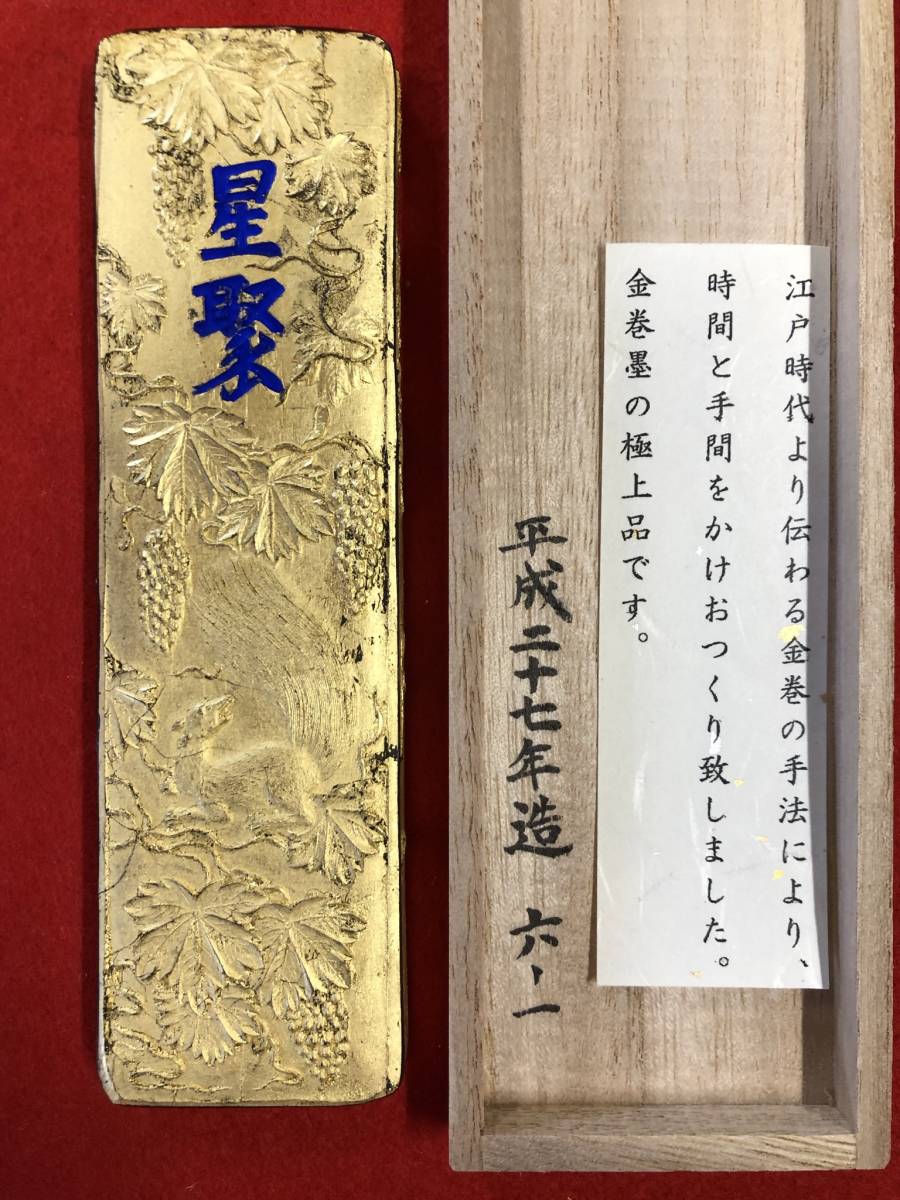 星聚
江戸時代より伝わる金巻の手法により、
時間と手間をかけおつくり致しました。
金巻墨の極上品です。
平成二十七年造 六-一